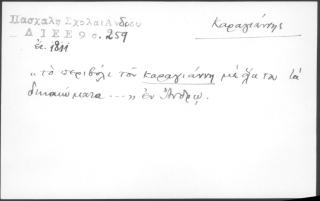 Πασχάλη Σχολαί Άνδρου
Καραγιάννης
ΔΙΕΕ 9 σ. 259
ἐτ. 1811
"τὸ περιβόλι τοῦ Καραγιάννη μὲ ὅλα του τὰ
δικαιώματα ..." ἐν Ἄνδρῳ.